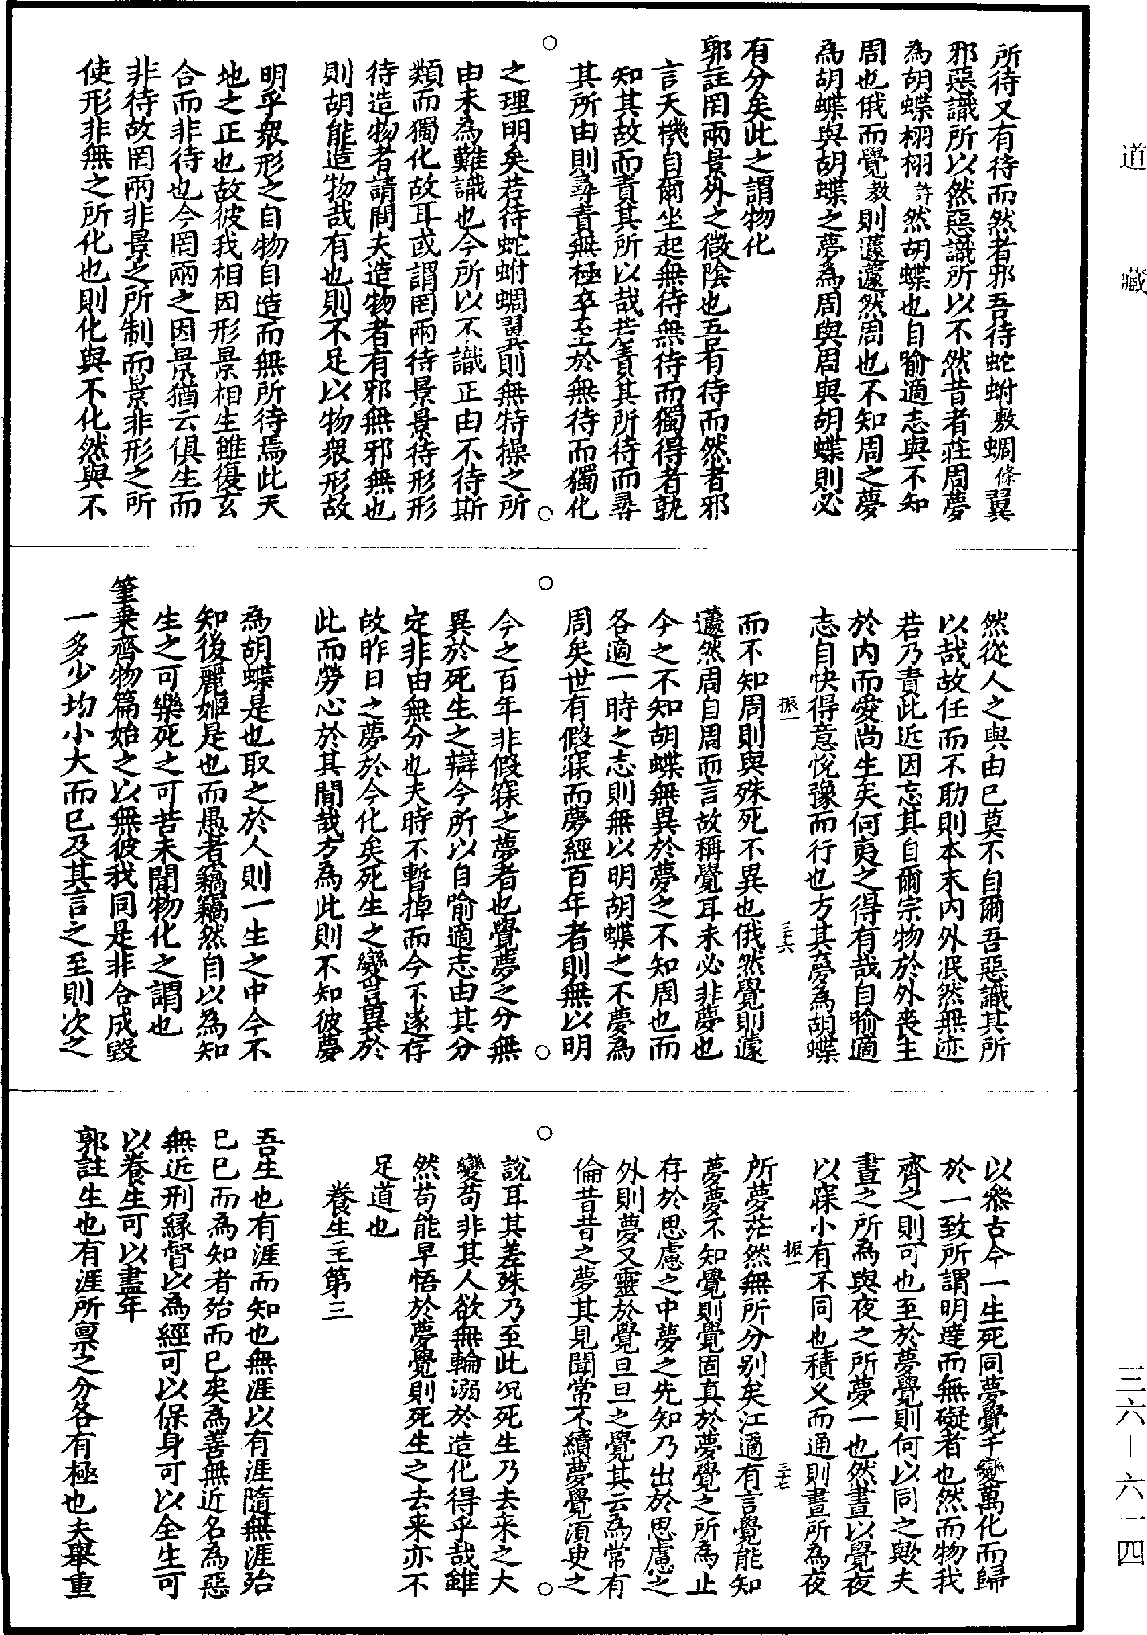 所待又有待而然者邪吾待蛇蚹敷蜩條翼
邪惡識所以然惡識所以不然昔者莊周夢
為胡蝶栩栩許然胡蝶也自喻適志與不知
周也俄而覺教則蘧蘧然周也不知周之夢
為胡蝶與胡蝶之夢為周與周與胡蝶則必
有分矣此之謂物化
郭註罔兩景外之微陰也吾有待而然者邪
言天機自爾坐起無待無待而獨得者孰
知其故而責其所以哉若責其所待而尋
其所由則尋責無極卒至於無待而獨化
之理明矣若待蛇蚹蜩翼則無特操之所
由未為難識也今所以不識正由不待斯
類而獨化故耳或謂罔兩待景景待形形
待造物者請問夫造物者有邪無邪無也
則胡能造物哉有也則不足以物眾形故
明乎眾形之自物自造而無所待焉此天
地之正也故彼我相因形景相生雖復玄
合而非待也今罔兩之因景猶云俱生而
非待故罔兩非景之所制而景非形之所
使形非無之所化也則化與不化然與不
然從人之與由己莫不自爾吾惡識其所
以哉故任而不助則本末內外泯然無迹
若乃責此近因忘其自爾宗物於外喪主
於內而愛尚生矣何夷之得有哉自喻適
志自快得意悅豫而行也方其夢為胡蝶
而不知周則與殊死不異也俄然覺則蘧
蘧然周自周而言故稱覺耳未必非夢也
今之不知胡蝶無異於夢之不知周也而
各適一時之志則無以明胡蝶之不夢為
周矣世有假寐而夢經百年者則無以明
今之百年非假寐之夢者也覺夢之分無
異於死生之辯今所以自喻適志由其分
定非由無分也夫時不暫掉而今不遂存
故昨日之夢於今化矣死生之變豈異於
此而勞心於其間哉方為此則不知彼夢
為胡蝶是也取之於人則一生之中今不
知後麗姬是也而愚者竊竊然自以為知
生之可樂死之可苦未聞物化之謂也
筆乗齊物篇始之以無彼我同是非合成毀
一多少均小大而已及其言之至則次之
以叅古今一生死同夢覺千變萬化而歸
於一致所謂明達而無礙者也然而物我
齊之則可也至於夢覺則何以同之歟夫
晝之所為與夜之所夢一也然晝以覺夜
以寐小有不同也積久而通則晝所為夜
所夢茫然無所分別矣江遹有言覺能知
夢夢不知覺則覺固真於夢覺之所為止
存於思慮之中夢之先知乃出於思慮之
外則夢又靈於覺旦旦之覺其云為常有
倫昔昔之夢其見聞常不續夢覺須臾之
說耳其差殊乃至此况死生乃去来之大
變苟非其人欲無輪溺於造化得乎哉雖
然苟能早悟於夢覺則死生之去来亦不
足道也
養生主第三
吾生也有涯而知也無涯以有涯隨無涯殆
已已而為知者殆而已矣為善無近名為惡
無近刑緣督以為經可以保身可以全生可
以養生可以盡年
郭註生也有涯所禀之分各有極也夫舉重
振一
三十六
振一
三十七
道藏
三六—六一四